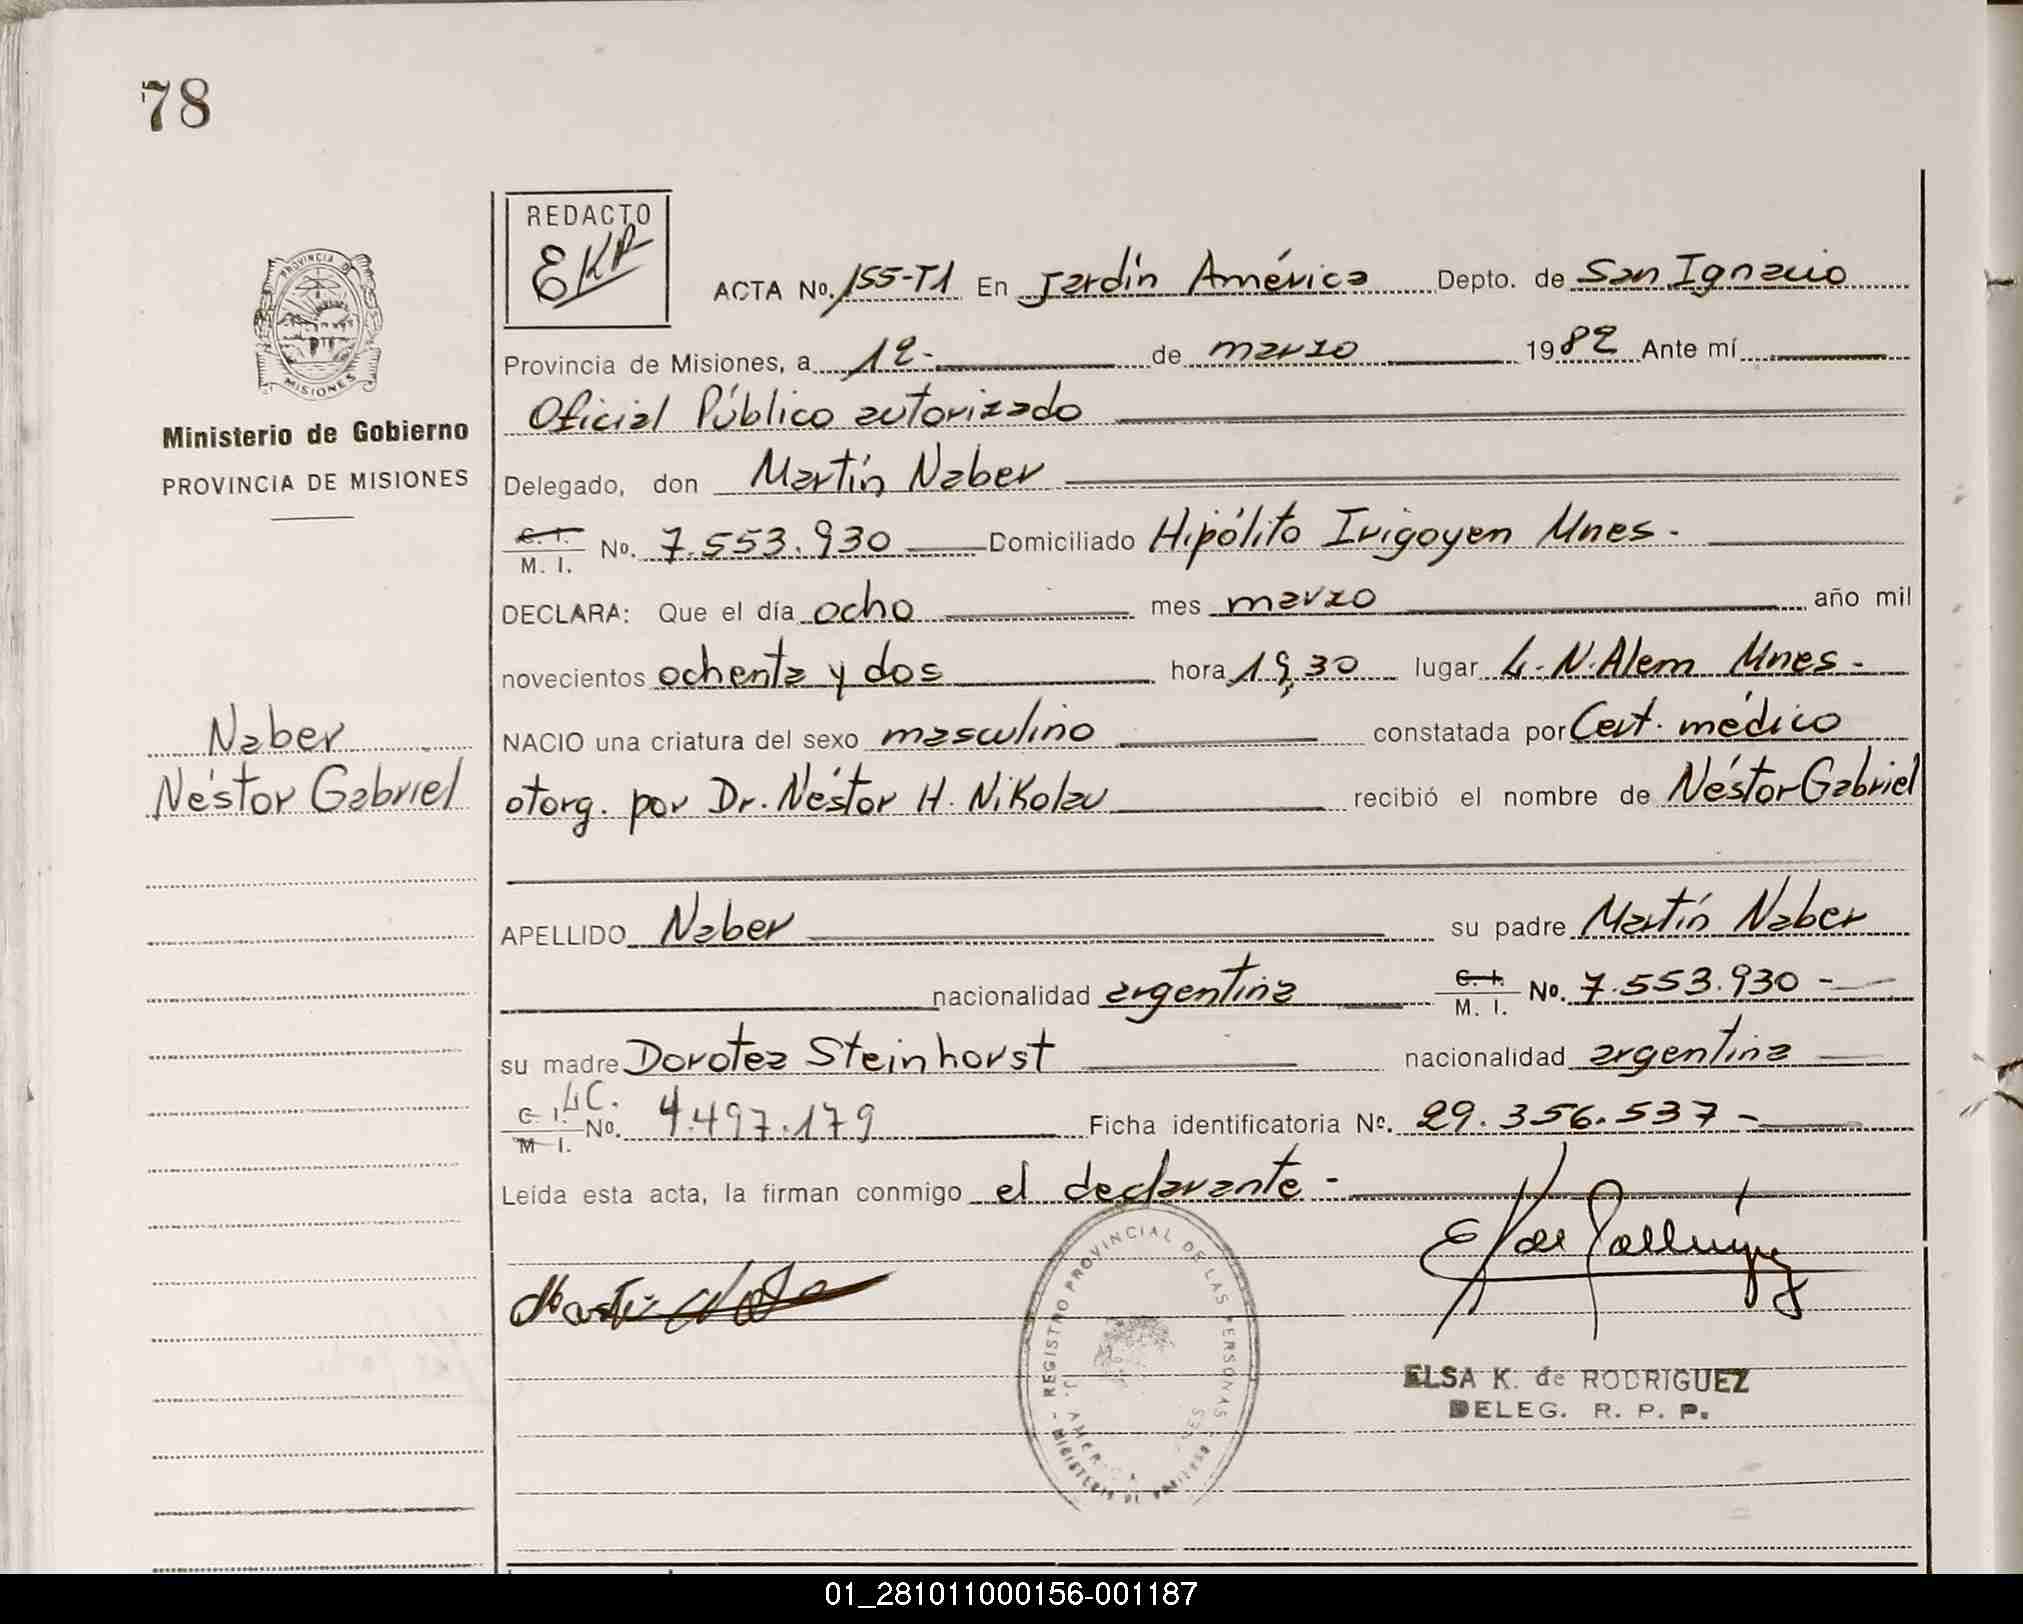 78
REDACTO
EKR
ACTA No. 155-T1 En Jardín América Depto. de San Ignacio
Provincia de Misiones, a 12- de marzo 1982 Ante mí
Oficial Público autorizado
Delegado, don Martín Naber
C. I. M. I. No. 7.553.930 Domiciliado Hipólito Irigoyen Mnes-
DECLARA: Que el día ocho mes marzo año mil
novecientos ochenta y dos hora 19,30 lugar L. N. Alem Mnes-
NACIO una criatura del sexo masculino constatada por Cert. médico
otorg. por Dr. Néstor H. Nikolau recibió el nombre de Néstor Gabriel
APELLIDO Naber su padre Martín Naber
nacionalidad argentina C. I. M. I. No. 7.553.930-
su madre Dorotea Steinhorst nacionalidad argentina
C. I. M. I. LC. No. 4.497.179 Ficha identificatoria No. 29.356.537-
Leída esta acta, la firman conmigo el declarante-
PROVINCIA DE
MISIONES
Ministerio de Gobierno
PROVINCIA DE MISIONES
Naber
Néstor Gabriel
REGISTRO PROVINCIAL DE LAS PERSONAS
J. AMERICA
MINISTERIO DE GOBIERNO
ELSA K. de RODRIGUEZ
DELEG. R. P. P.
01_281011000156-001187